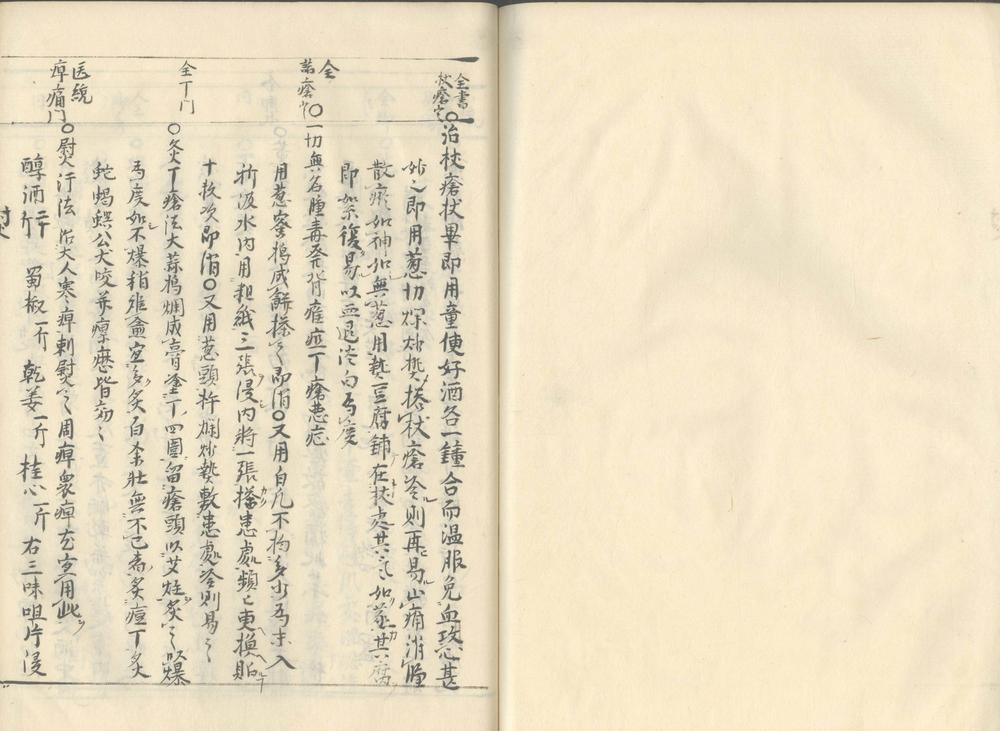 全書
杖瘡
○治杖瘡杖畢即用童便好酒各一鍾合而温服免血攻心甚
妙之即用葱切碎炒焚搽杖瘡冷則再易止痛消腫
散瘀如神如無葱用熱豆腐鋪在杖處其氣如蒸其腐
即紫復易以血退淡白為度
全
諸瘡
○一切無名腫毒発背癰疽丁瘡悪
用葱蜜搗成餅搽之即消○又用白凡不拘多少為末入
新汲水内用粗紙三張浸内将一張搭患處頻〻更換貼
十数次即消○又用葱頭杵爛炒熱敷患處冷則易之
全丁門
○灸丁瘡法大蒜搗爛成膏塗丁四圍留瘡頭以艾炷灸之以爆
為度如不爆稍難愈宜多灸百余壮無不已者灸痘丁灸
蛇蝎蜈公犬咬并瘰癧皆効〻
医統
痺痛門
○熨汗法 治大人寒痺刺熨之周痺衆痺尤宜用此
醇酒二十斤 蜀椒一斤 乾姜一斤 桂心一斤 右三味咀片浸